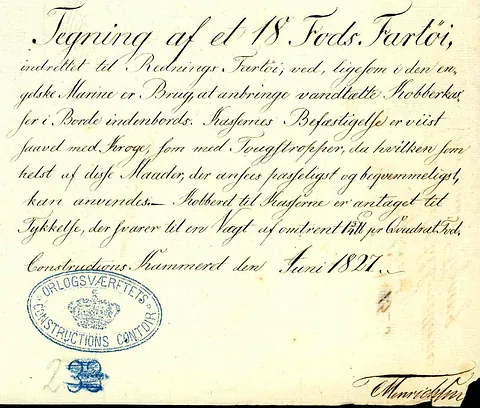 Tegning af et 18 Fods Fartöi,
indrettet til Rednings Fartöi, ved, ligesom i den en-
gelske Marine er Brug, at anbringe vandtætte Kobberkas-
ser i Borde indenbords. Kassernes Befæstigelse er viist
saavel med Kroge, som med Tougstropper, da hvilken som
helst af disse Maader, der ansees passeligst og beqvemmeligst,
kan anvendes.— Kobberet til Kasserne er antaget til
Tykkelse, der svarer til en Vægt af omtrent pr Qvadrat Fod.
Constructions Kammeret den Juni 1827.
ORLOGSVÆRFTETS
CONSTRUCTIONS CONTOIR
2